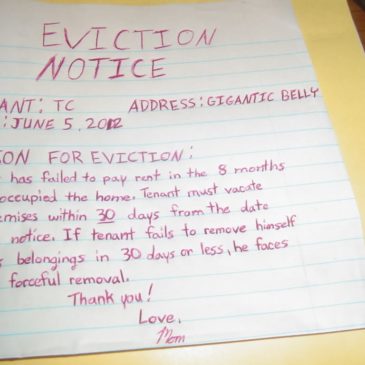 EVICTION
NOTICE
ANT: TC ADDRESS: GIGANTIC BELLY
: JUNE 5, 2012
ON FOR EVICTION:
has failed to pay rent in the 8 months
occupied the home. Tenant must vacate
mises within 30 days from the date
notice. If tenant fails to remove himself
belongings in 30 days or less, he faces
forceful removal.
Thank you!
Love,
Mom